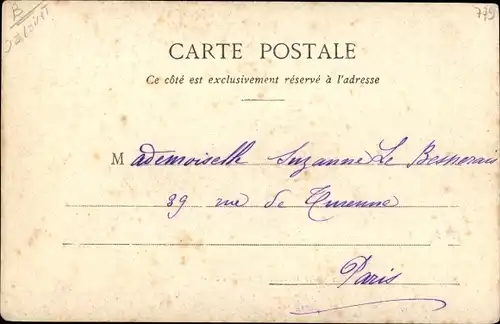 B
779
CARTE POSTALE
Ce côté est exclusivement réservé à l'adresse
Mademoiselle Suzanne Le
39 rue de Turenne
Paris